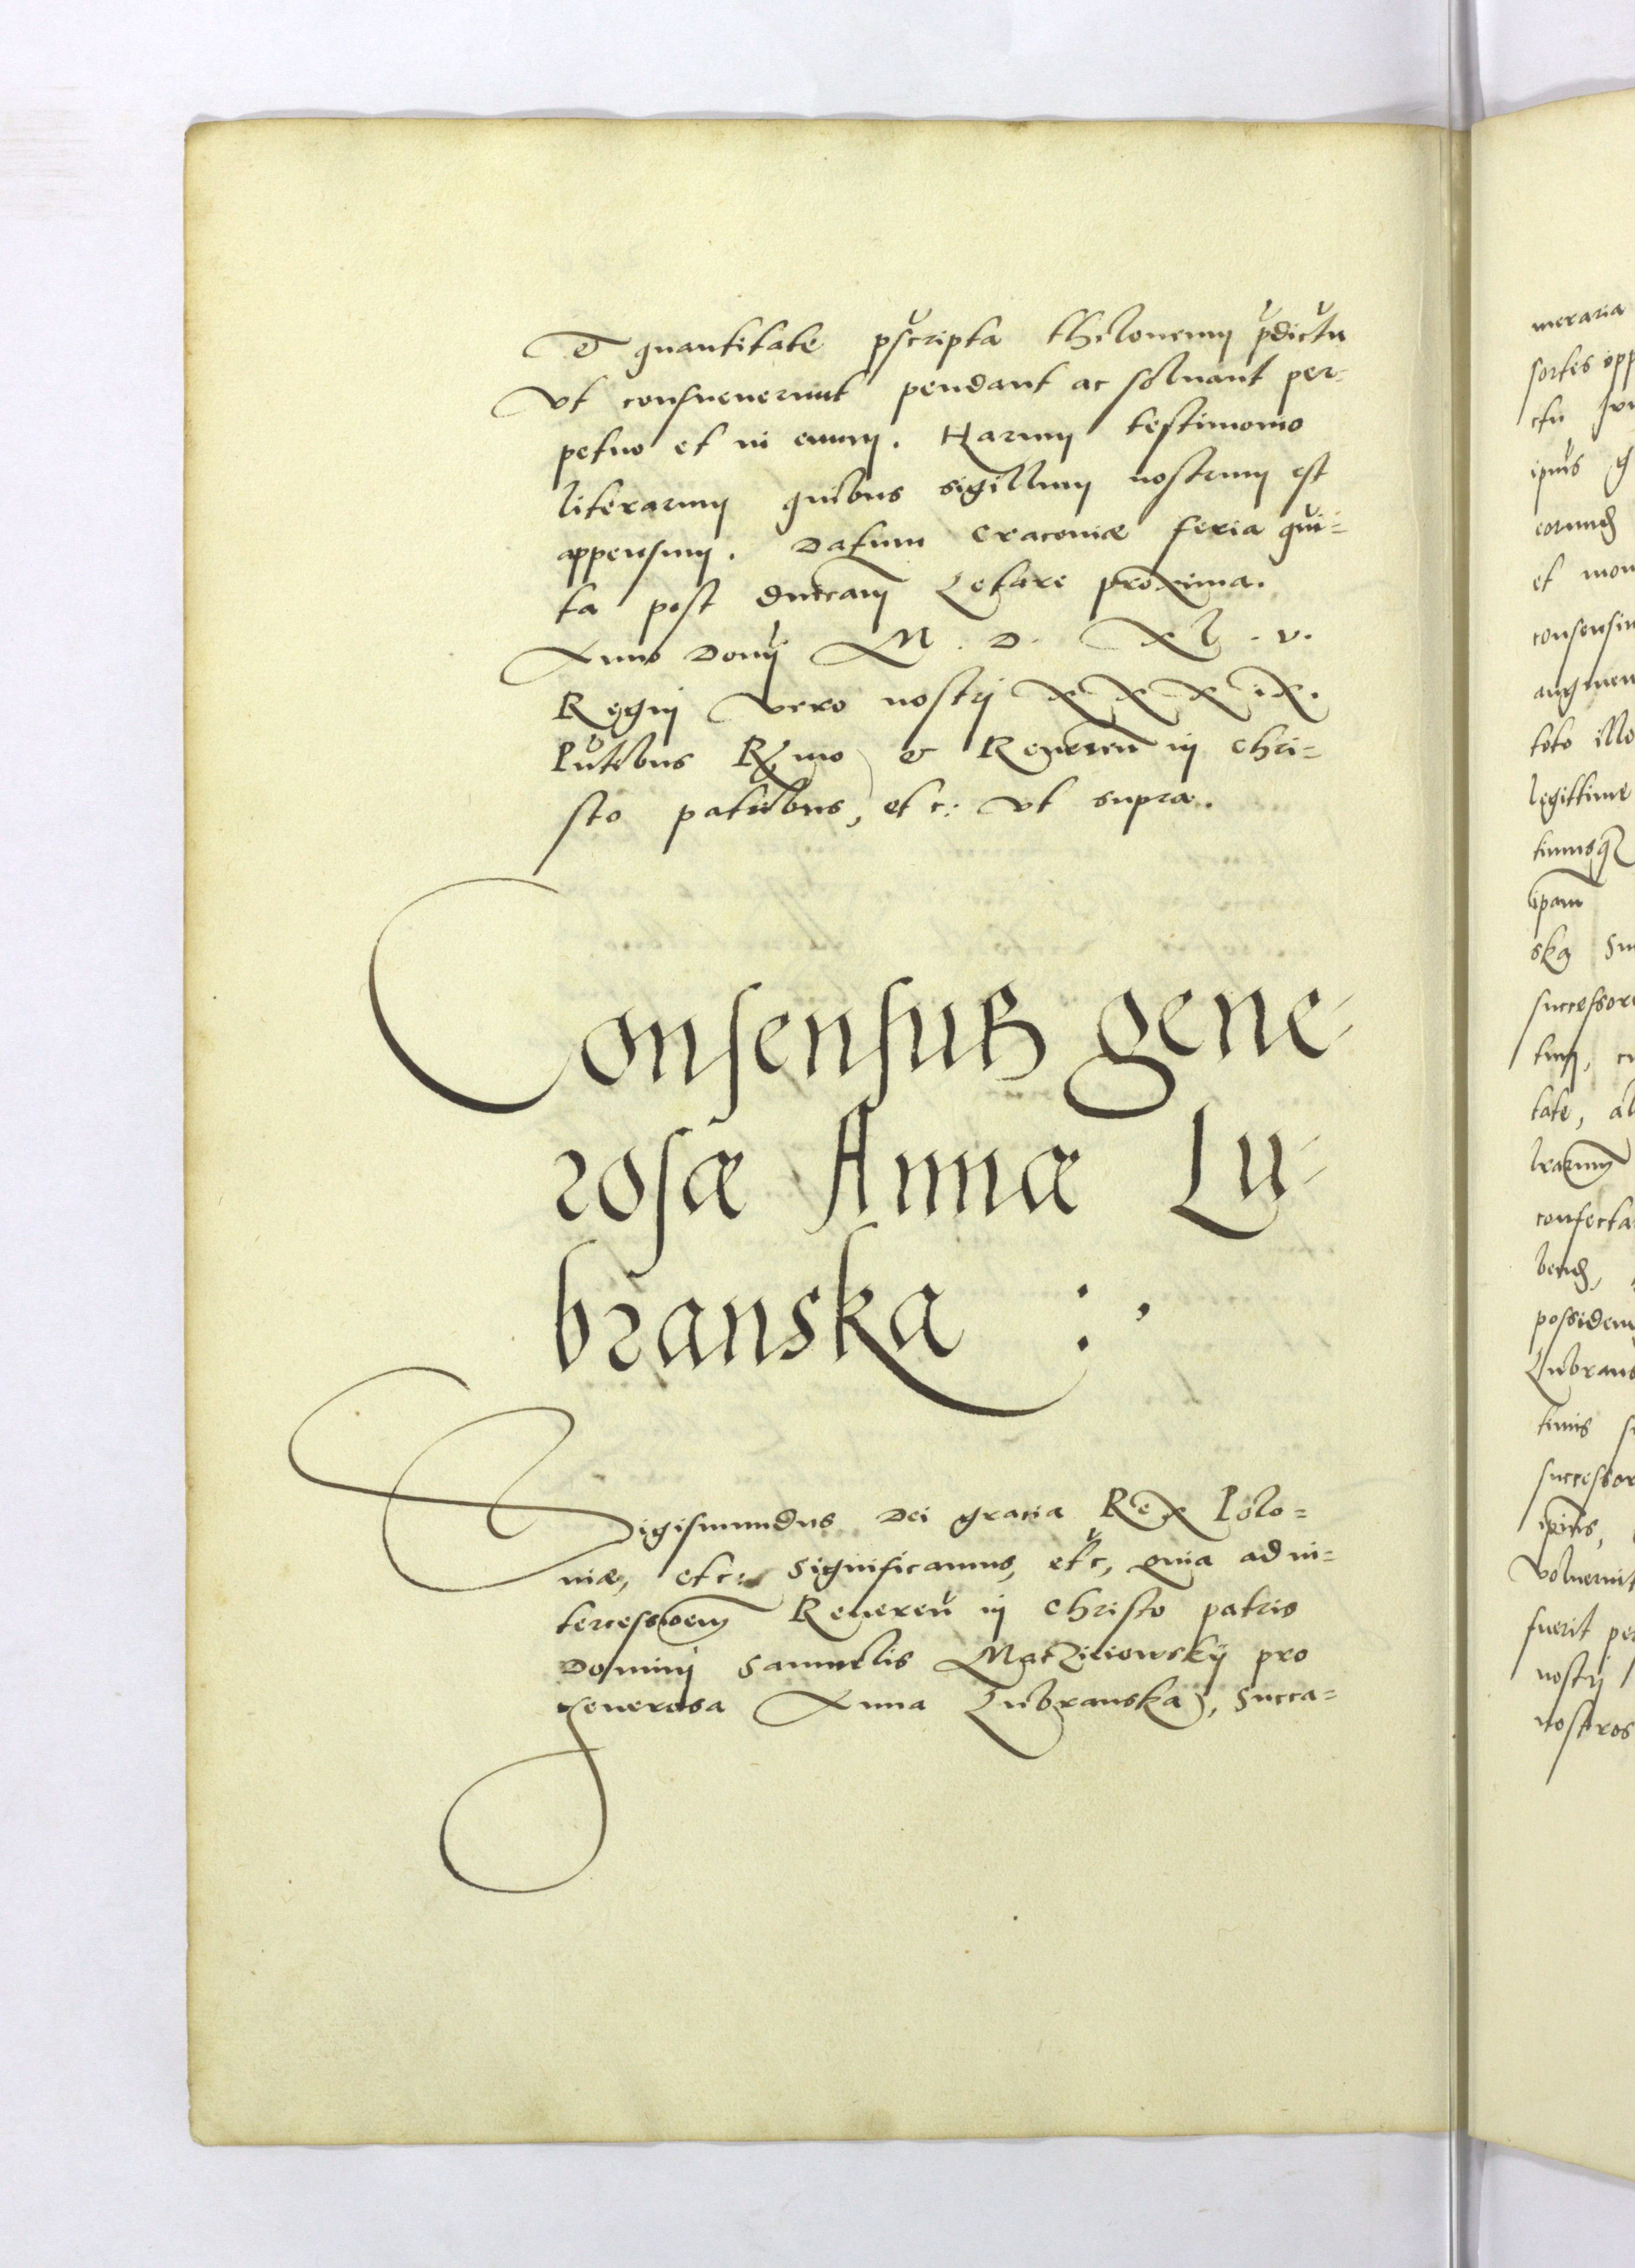 Et quantitate pscripta theloneum pdictu
vt consueuerunt pendant ac soluant per-
petuo et in euum. Harum testimonio
literarum quibus sigillum nostrum est
appensum. Datum Cracouiæ feria qui-
ta post dnicam Letare proxima.
Anno Domj M. D. XL. V.
Regnj vero nostrj XXXIX.
Pntibus Rmo et Reueren in Chri-
sto patribus, etc: vt supra.
Consensus gene-
rosæ Annæ Lu-
branska :,
Sigismundus Dei gratia Rex Polo-
niæ, etc: Significamus, etc, quia ad in-
tercessioem Reueren in Christo patris
Dominj Samuelis Matzieiowskij pro
generosa Anna Lubranska, Succa-
meraria
sortes opp
ctu
ipius
eorund
et mon
consensu
augmen
toto illo
legittime
timusq
ipam
ska Su
successor
tum,
tate, al
lrarum
confecta
bend,
possiden
Lubrans
timis s
successor
ipius,
voluerit
fuerit per
nostrj
nostros